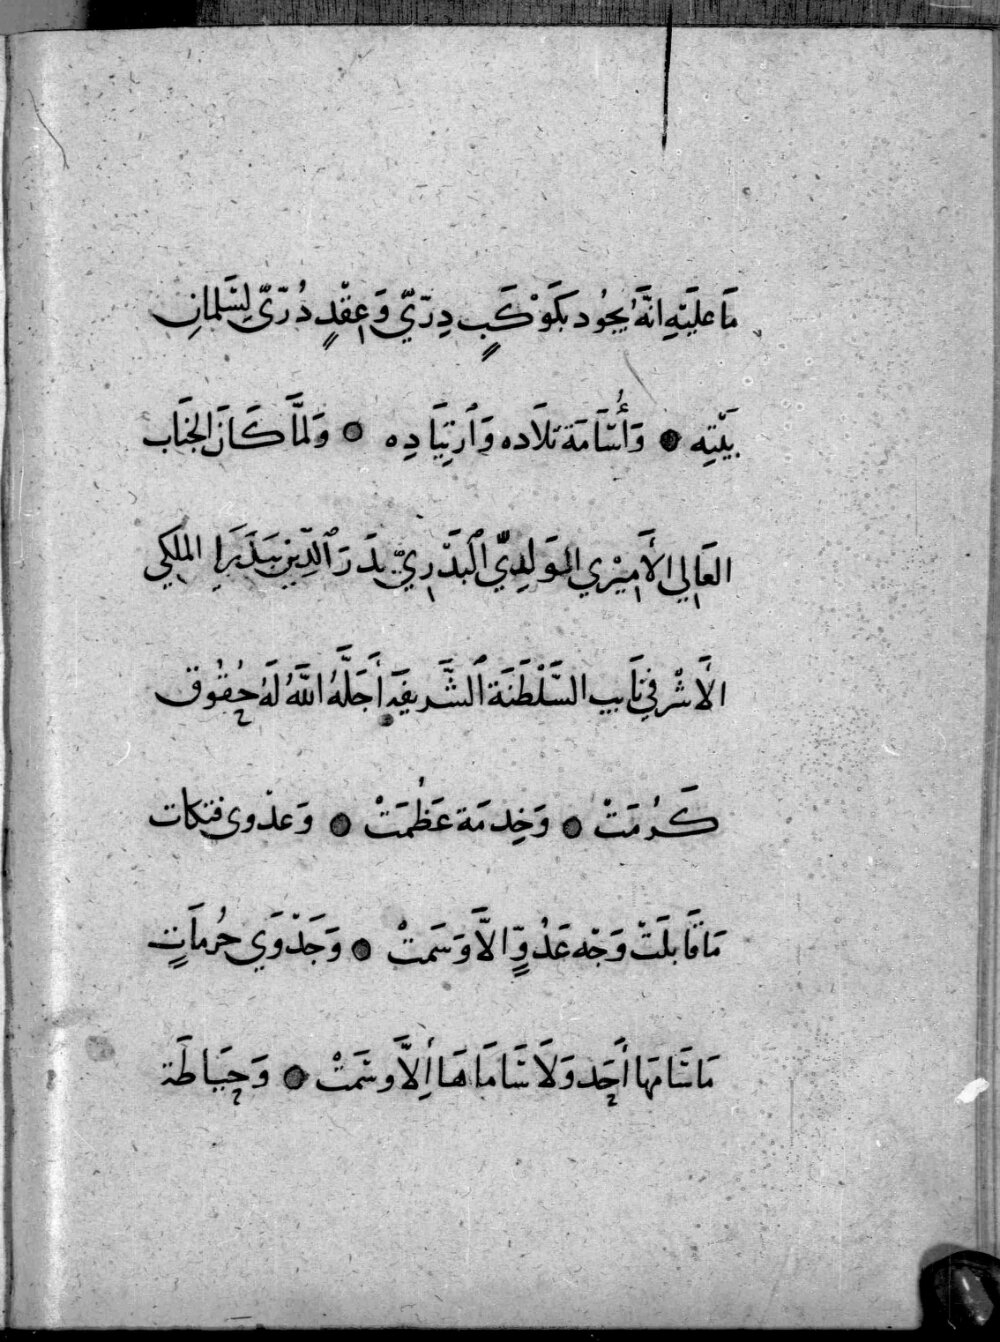 مَا عليَتهِ انَّهُ يجُود بكَوْكَبٍ دِرّيّ وَعِقْدٍ دُرّيّ لِسَلمانِ
بَيْتِه ● وَأُسَامَة تلَاده وَٱرتِيَادِه ● وَلمَّا كَانَ الجنَاب
العَالِي الأَمِيْري المَوَلدِيّ ٱلبَدْرِيّ بدَرَ ٱلدّين بَيدَرَا الملكي
الأَشْرفي نَايب السَّلْطَنَة ٱلشَّريفَة أَجَلَّهُ اللَّهُ لَهُ حُقُوق
كَرُمَتْ ● وَخِدمَة عَظُمَتْ ● وَعدْوى فتكات
مَا قَابلَتْ وَجْه عَدُوٍّ الاَّ وَسَمتْ ● وَجَدْوَي حُرمَاتٍ
مَا سَامهَا أَحَد وَلاَ سَامَاهَا إِلاَّ وسَمَتْ ● وَحِيَاطَة